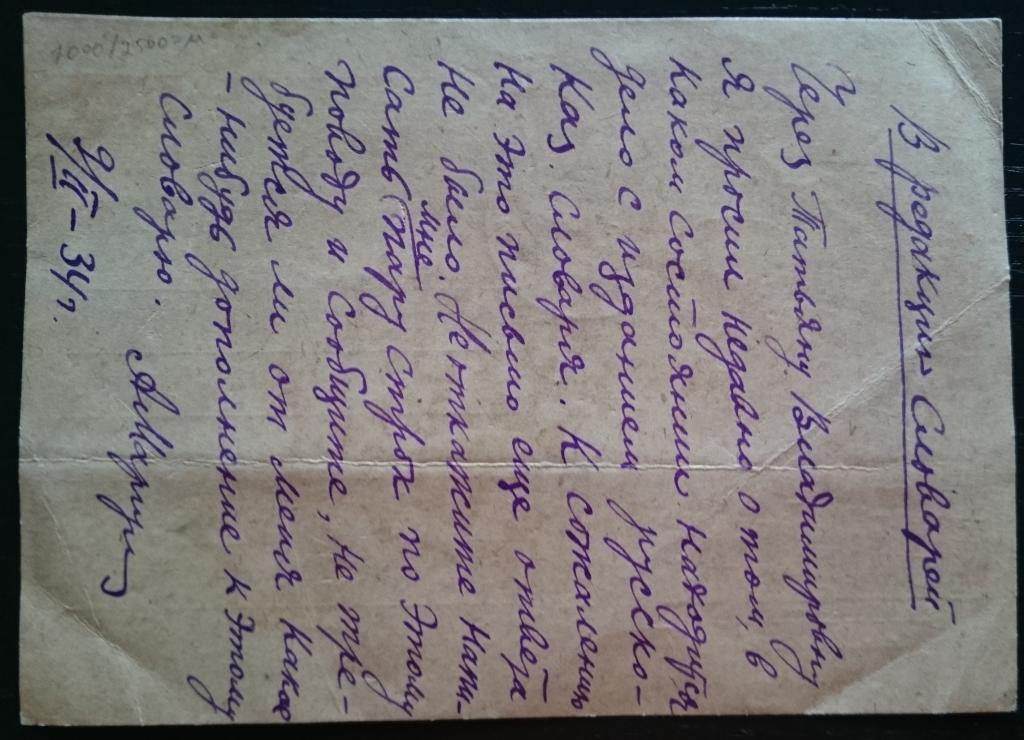 В редакцию Словарей
Через Татьяну Владимировну
Я просил недавно о том, в
каком состоянии находится
дело с изданием русско-
каз. словаря. К сожалению
на это письмо еще ответа
не было. Не откажите напи-
сать мне пару строк по этому
поводу и сообщите, не тре-
буется ли от меня какое
-нибудь дополнение к этому
словарю.
9/II-34г.
1000/2500-м